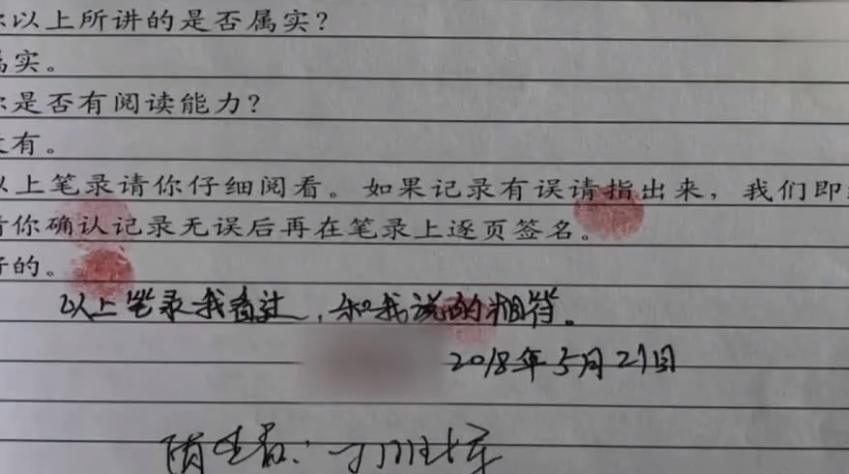 以上所讲的是否属实？
属实。
是否有阅读能力？
有。
以上笔录请你仔细阅看。如果记录有误请指出来，我们即
你确认记录无误后再在笔录上逐页签名。
的。
以上笔录我看过，和我说的相符。
2018年5月21日